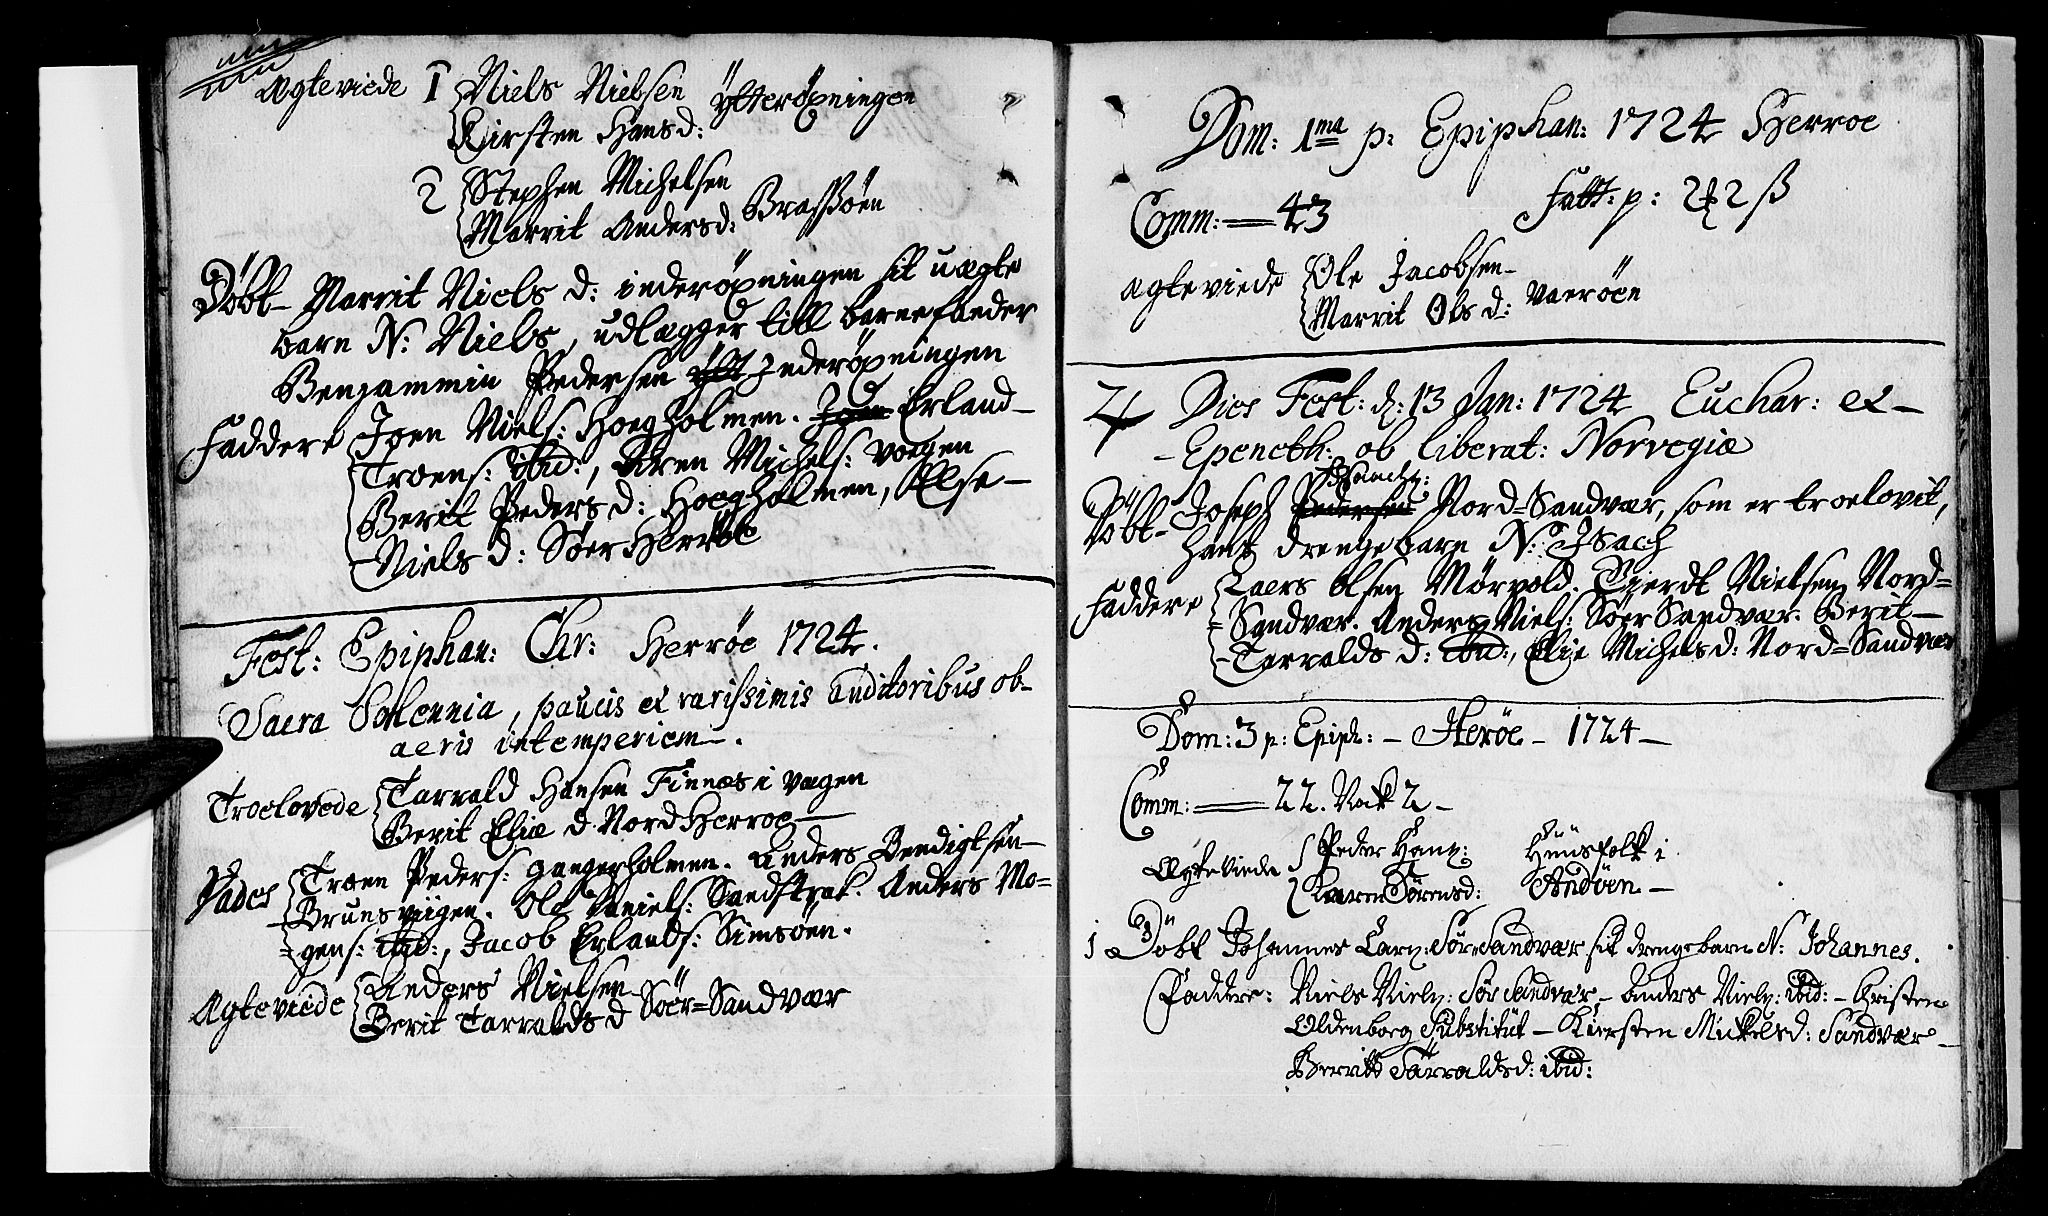 Agteviede 1 Niels Nielsen Ytterøpningen
Kirsten Hansd:
2 Stephen Michelsen
Marrit Andersd: Brasøen
Döbt Marrit Niels d: inderöpningen sit uægte
barn N: Niels, udlægger till barnefaeder
Benjammin Pedersen ÿtt Inderöpningen
Faddere Joen Niels: Hoegholmen. Joen Erland-
Troens: ibid:, Karen Michels: Vogen
Berit Peders d: Hoegholmen, Else-
Niels d: Söer Herröe
Fest: Epiphan: Chr: Herröe 1724.
Sacra Solennia, paucis et rarissimis auditoribus ob-
aeris intemperiem.
Troelovede Tarvald Hansen Finnæs i Vægen
Berit Eliæ d Nord Herroe
Vades Troen Peders: Gangerholmen. Anders Bendigtsen
Brunsviigen. Ole Daniels: Sandstrak. Anders Mo=
gens: ibid:, Jacob Erlands: Simsöen.
Agteviede Anders Nielsen
Berit Tarvalds d Söer=Sandvær
Dom: 1ma p: Epiphan: 1724 Herroe
Comm: — 43 Fatt: p: 2 ß
Agteviede Ole Jacobsen
Marrit Ols d: Vaeröen
4 Dies Fest: d: 13 Jan: 1724 Euchar: et-
Epeneth: ob liberat: Norvegiæ
Döbt Joseph Pedersen Nord=Sandvær, som er troelovit,
hans drengebarn N: Isach
Faddere Laers Olsen Mörvold. Tierdt Nielsen Nord=
=Sandvær. Anders Niels: Söer Sandvær. Berit
Tarvalds d: ibid:, Elie Michels d: Nord=Sandvær
Dom: 3 p: Epiph: - Heröe - 1724 -
Comm: — 22. Nok 2 -
Agteviede Peder Hans: Huusfolk i
Karen Sörensd: Andöen -
1 Döbt Johannes Lars: Sör Sandvær sit drengebarn N: Johannes.
Faddere: Niels Niels: Sör Sandvær - Anders Niels: ibid: - Christen
Oldenborg Substitüt - Kiersten Mickelsd: Sandvær -
Berritt Tarvaldsd: ibid: